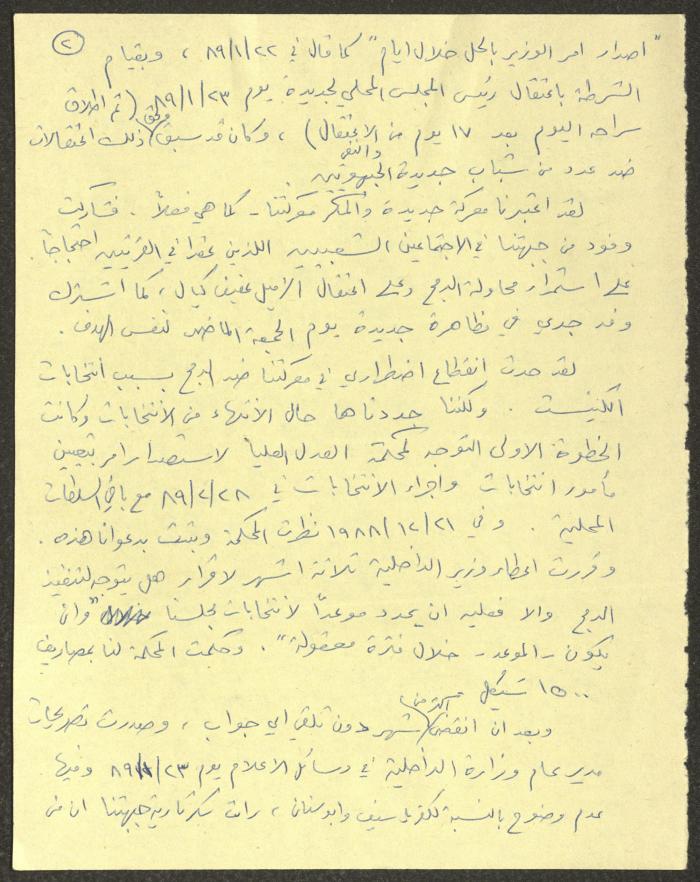 ٢
"اصدار امر الوزير بالحل خلال ايام" كما قال في ٨٩/١/٢٢ ، وبقيام
الشرطة باعتقال رئيس المجلس المحلي لجديدة يوم ٨٩/١/٢٣ (تم اطلاق
سراحه اليوم بعد ١٧ يوم من الاعتقال) ، وكان قد سبق ورافق ذلك اعتقالات
ضد عدد من شباب جديدة الجبهويين والنفي.
لقد اعتبرنا معركة جديدة والمكر معركتنا - كما هي فعلاً . فشاركت
وفود من جبهتنا في الاجتماعين الشعبيين اللذين عقدا في القريتين احتجاجاً
على استمرار محاولة الدمج وعلى اعتقال الزميل عفيف كيال ، كما اشترك
وفد جدي في مظاهرة جديدة يوم الجمعة الماضي لنفس الهدف .
لقد حدث انقطاع اضطراري في معركتنا ضد الدمج بسبب انتخابات
الكنيست . ولكننا جددناها حال الانتهاء من الانتخابات وكانت
الخطوة الاولى التوجه لمحكمة العدل العليا لاستصدار امر بتعيين
مأمور انتخابات واجراء الانتخابات في ٨٩/٢/٢٨ مع باقي السلطات
المحلية . وفي ١٩٨٨/١٢/٢١ نظرت المحكمة وبتت بدعوانا هذه .
وقررت اعطاء وزير الداخلية ثلاثة اشهر لاقرار هل يتوجه لتنفيذ
الدمج والا فعليه ان يحدد موعداً لانتخابات مجلسنا "وان
يكون - الموعد - خلال فترة معقولة" . وحكمت المحكمة لنا بمصاريف
١٥٠٠ شيكل
وبعد ان انقضى اكثر من شهر دون تلقي اي جواب ، وصدرت تصريحات
مدير عام وزارة الداخلية في وسائل الاعلام يوم ٨٩/١/٢٣ وفيها
عدم وضوح بالنسبة لكفر ياسيف وابوسنان ، رات سكرتارية جبهتنا ان من